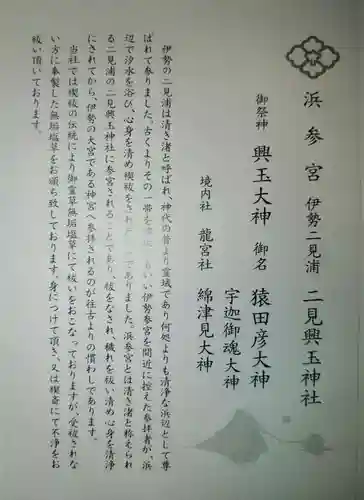 浜参宮 伊勢二見浦 二見興玉神社
御祭神 興玉大神 御名 猿田彦大神
宇迦御魂大神
境内社 龍宮社 綿津見大神
伊勢の二見浦は清き渚と呼ばれ、神代の昔より霊域であり何処よりも清浄な浜辺として尊
ばれて参りました。古くよりその一帯を 伊勢参宮を間近に控えた参拝者が、浜
辺で汐水を浴び、心身を清め禊祓をされ ありました。浜参宮とは清き渚と称えられ
る二見浦の二見興玉神社に参宮されることであり、祓をなされ、穢れを祓い清め心身を清浄
にされてから、伊勢の大宮である神宮へ参拝されるのが往古よりの慣わしであります。
当社では禊祓の伝統により御霊草無垢塩草にて祓いをおこなっておりますが、受祓されな
い方に奉製した無垢塩草をお頒ち致しております。身につけて頂き、又は禊斎にて不浄をお
祓い頂いております。